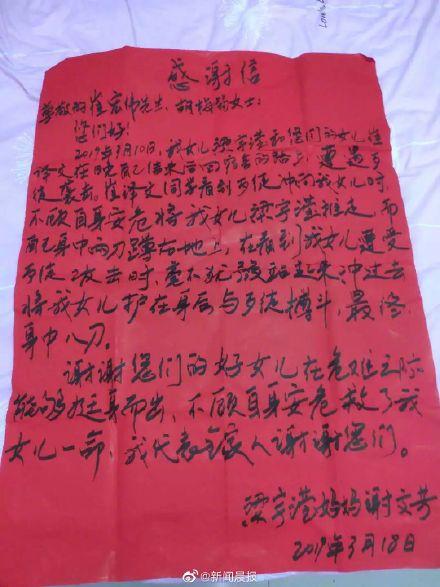 感谢信
尊敬的崔宏伟先生、胡梅菊女士:
您们好!
2019年3月10日,我女儿梁宇滢和您们的女儿崔
译文在晚自己结束后回宿舍的路上,遭遇歹
徒袭击。崔译文同学看到歹徒冲向我女儿时,
不顾自身安危将我女儿梁宇滢推走,而
自己身中两刀蹲在地上,在看到我女儿遭受
歹徒2次攻击时,毫不犹豫站起来,冲过去
将我女儿护在身后与歹徒搏斗,最终
身中八刀。
谢谢您们的好女儿在危难之际
能够挺身而出,不顾自身安危救了我
女儿一命,我代表全家人谢谢您们。
梁宇滢妈妈谢文芳
2019年3月18日
@新闻晨报